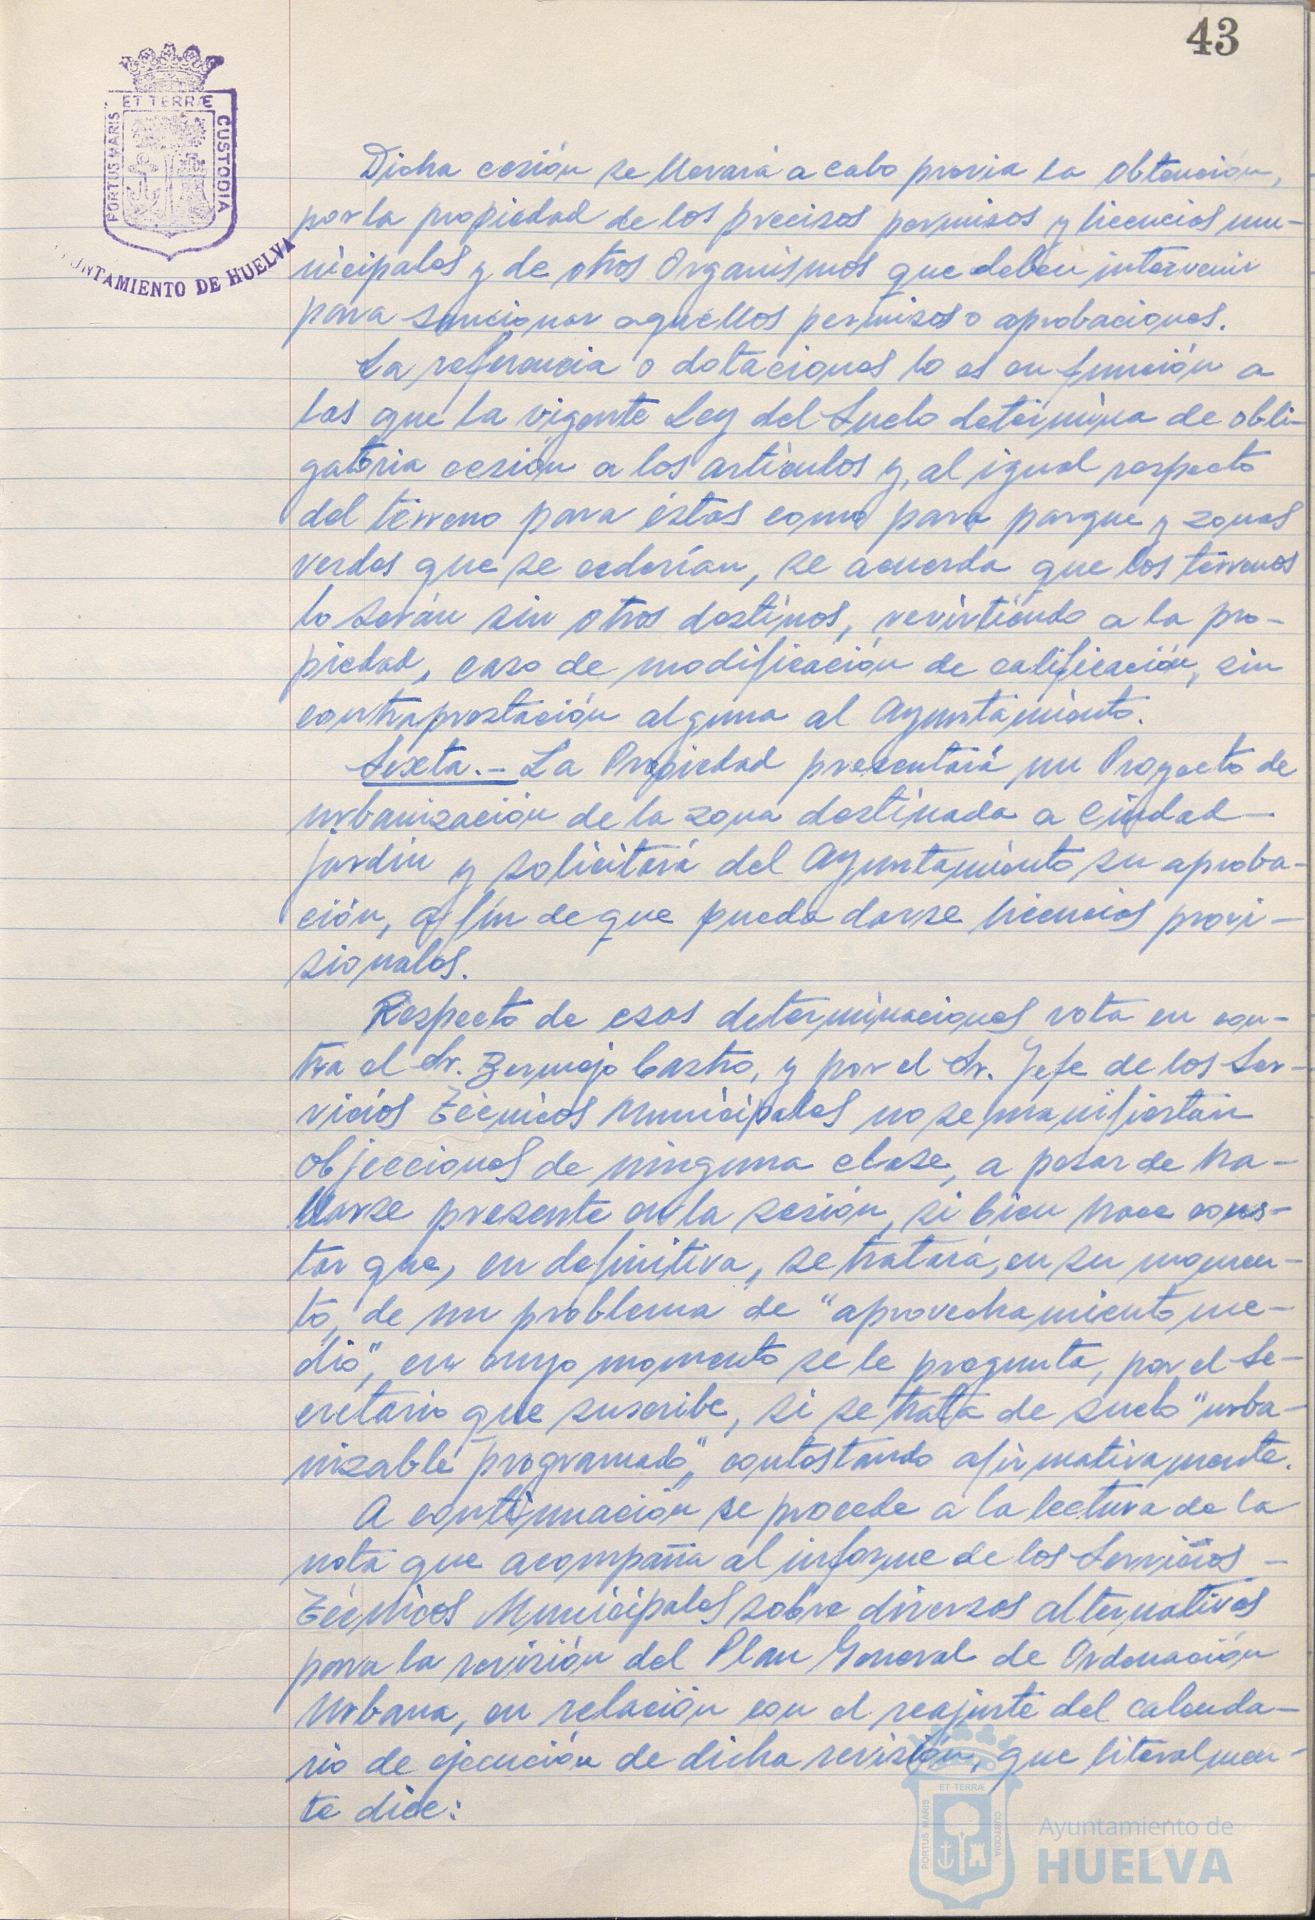 43
ET TERRÆ
PORTUS MARIS
CUSTODIA
UNTAMIENTO DE HUELVA
Dicha cesión se llevará a cabo previa la obtención,
por la propiedad de los precisos permisos y licencias mu-
nicipales y de otros Organismos que deben intervenir
para sancionar aquellos permisos o aprobaciones.
La referencia o dotaciones lo es en función a
las que la vigente Ley del Suelo determina de obli-
gatoria cesión a los artículos y, al igual respecto
del terreno para éstas como para parque y zonas
verdes que se cederían, se acuerda que los terrenos
lo serán sin otros destinos, revirtiendo a la pro-
piedad, caso de modificación de calificación, sin
contraprestación alguna al Ayuntamiento.
Sexta.- La Propiedad presentará un Proyecto de
urbanización de la zona destinada a Ciudad-
jardín y solicitará del Ayuntamiento su aproba-
ción, a fin de que pueda darse licencias provi-
sionales.
Respecto de esas determinaciones vota en con-
tra el Sr. Bermejo Castro, y por el Sr. Jefe de los Ser-
vicios Técnicos Municipales no se manifiestan
objecciones de ninguna clase, a pesar de ha-
llarse presente en la sesión, si bien hace cons-
tar que, en definitiva, se tratará, en su momen-
to, de un problema de "aprovechamiento me-
dio", en cuyo momento se le pregunta, por el Se-
cretario que suscribe, si se trata de suelo "urba-
nizable programado", contestando afirmativamente.
A continuación se procede a la lectura de la
nota que acompaña al informe de los Servicios -
Técnicos Municipales sobre diversas alternativas
para la revisión del Plan General de Ordenación
Urbana, en relación con el reajuste del calenda-
rio de ejecución de dicha revisión, que literalmen-
te dice:
ET TERRÆ
PORTUS MARIS
CUSTODIA
Ayuntamiento de
HUELVA